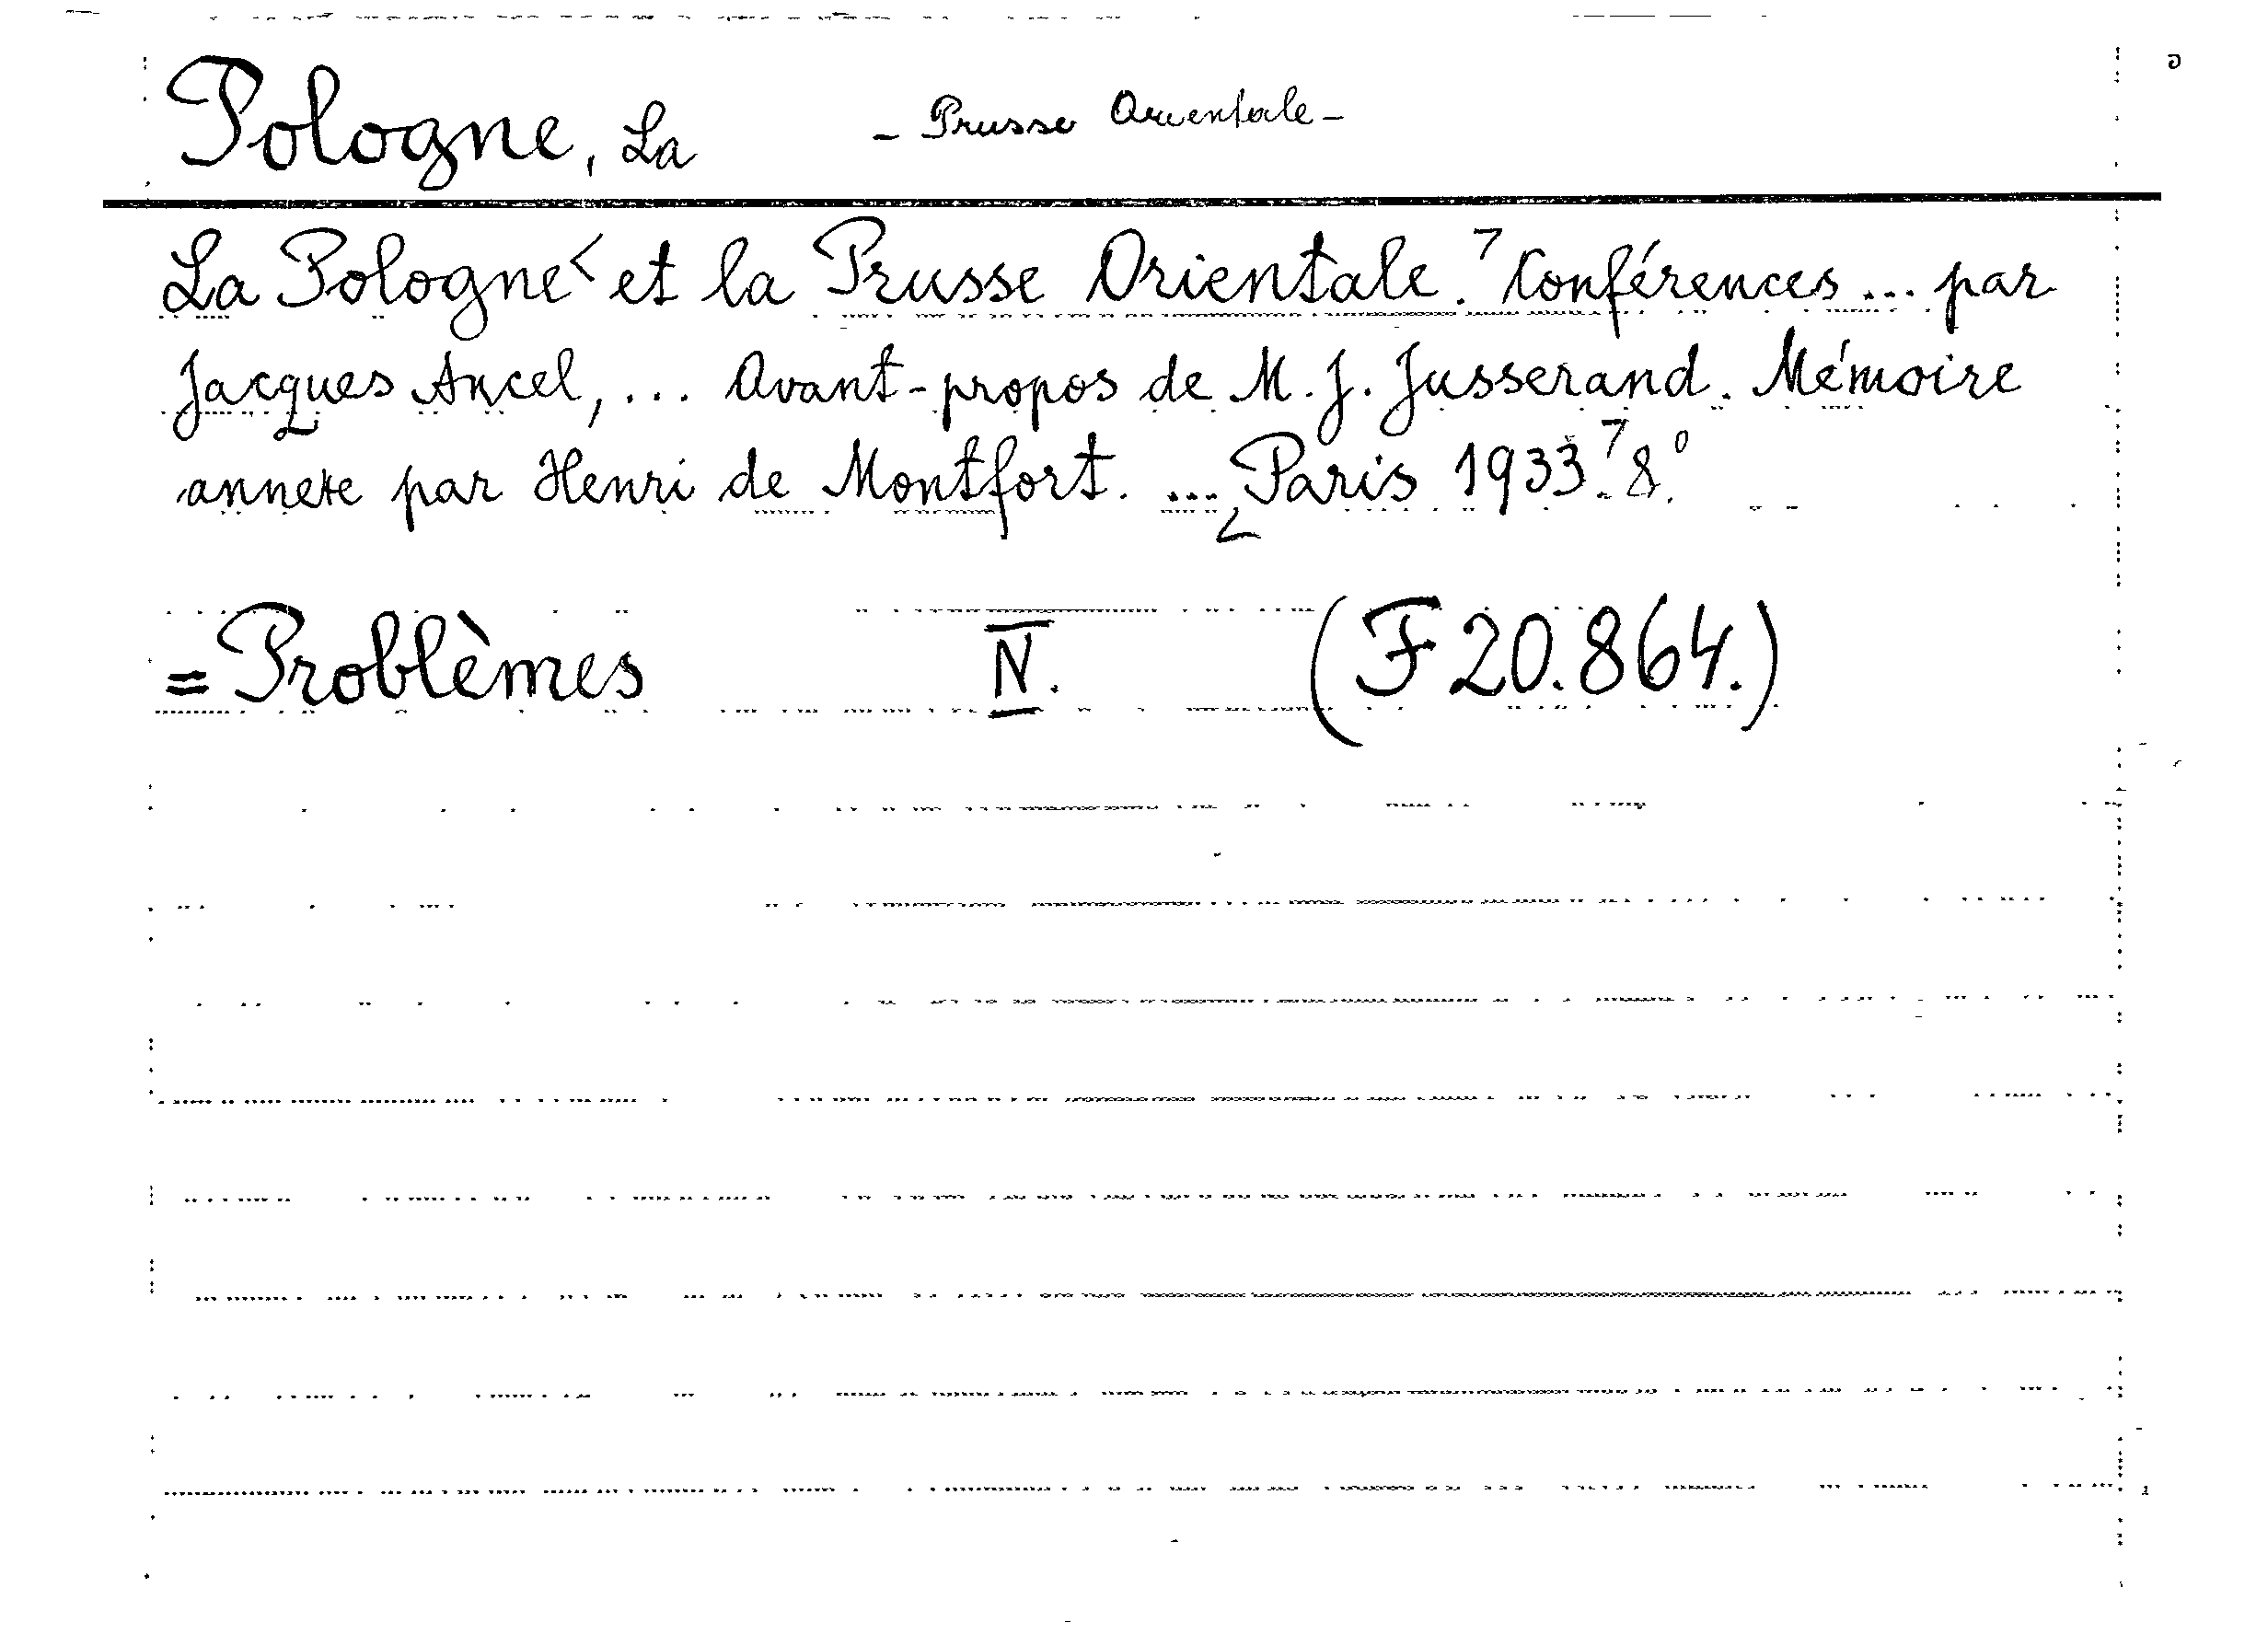 Pologne, La - Prusse Orientale -
La Pologne et la Prusse Orientale. Conférences ... par
Jacques Ancel, ... Avant-propos de M. J. Jusserand. Mémoire
annexe par Henri de Montfort. ... Paris 1933. 8.º
= Problèmes IV. (F 20.864.)